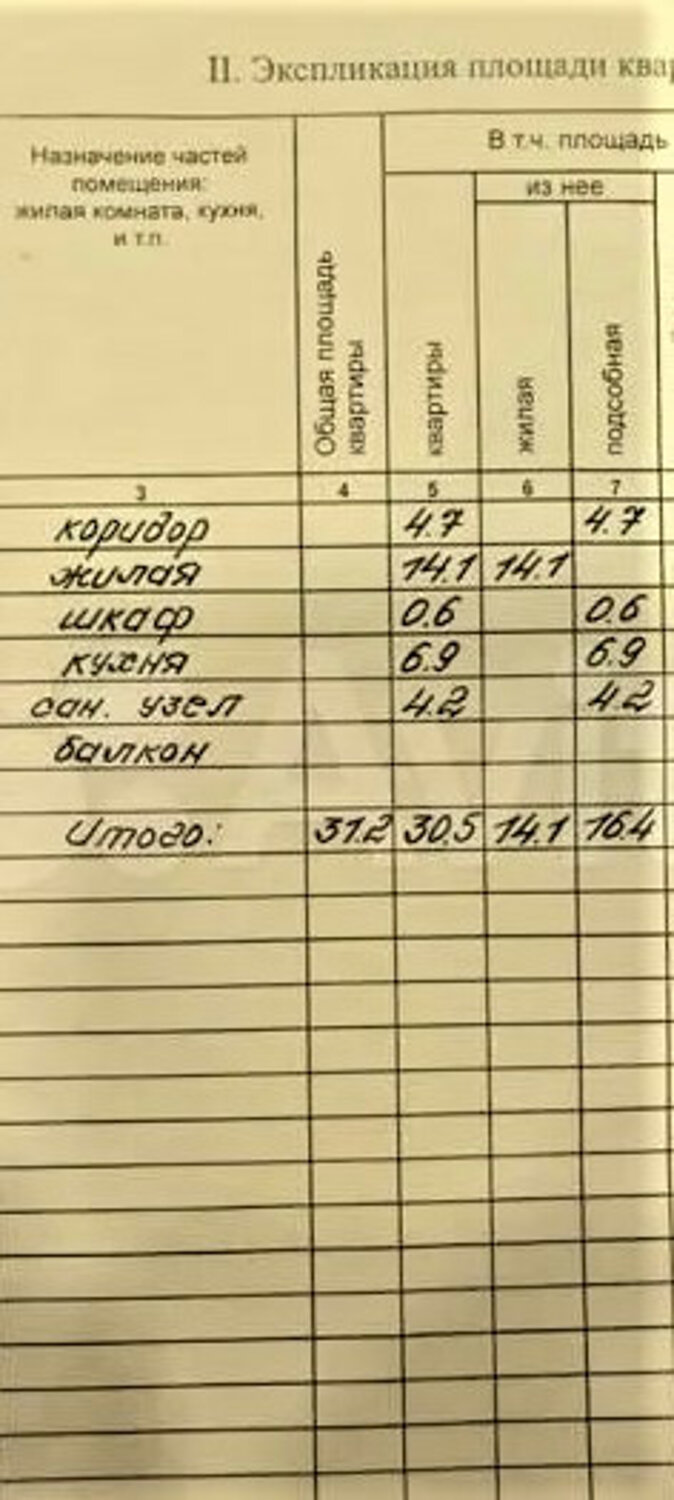 II. Экспликация площади квар
Назначение частей
помещения:
жилая комната, кухня,
и т.п.
Общая площадь
квартиры
В т.ч. площадь
из нее
квартиры
жилая
подсобная
3 4 5 6 7
коридор 4.7 4.7
жилая 14.1 14.1
шкаф 0.6 0.6
кухня 6.9 6.9
сан. узел 4.2 4.2
балкон
Итого: 31.2 30.5 14.1 16.4